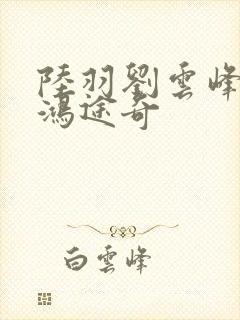 陸羽劉雲峰
鴻途奇
白雲峰